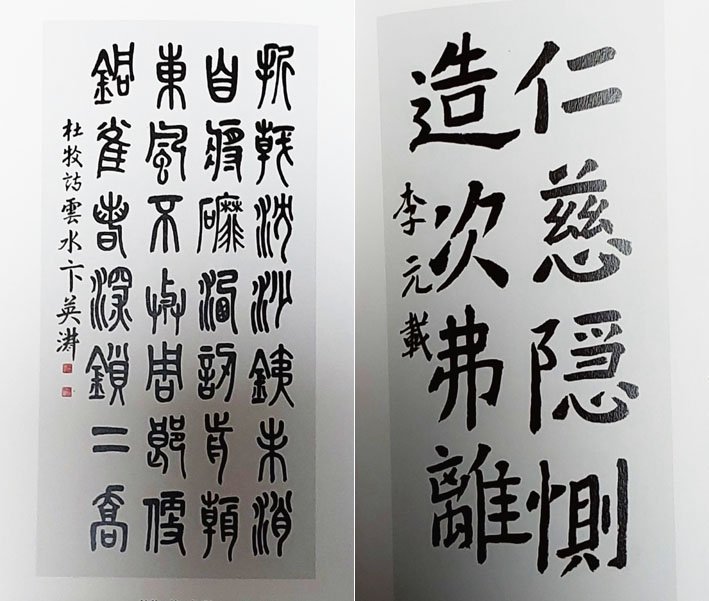 折戟沈沙銕未消
自將磨洗認前朝
東風不與周郎便
銅雀春深鎖二喬
杜牧詩雲水卞英淵
仁慈隠惻
造次弗離
李元載